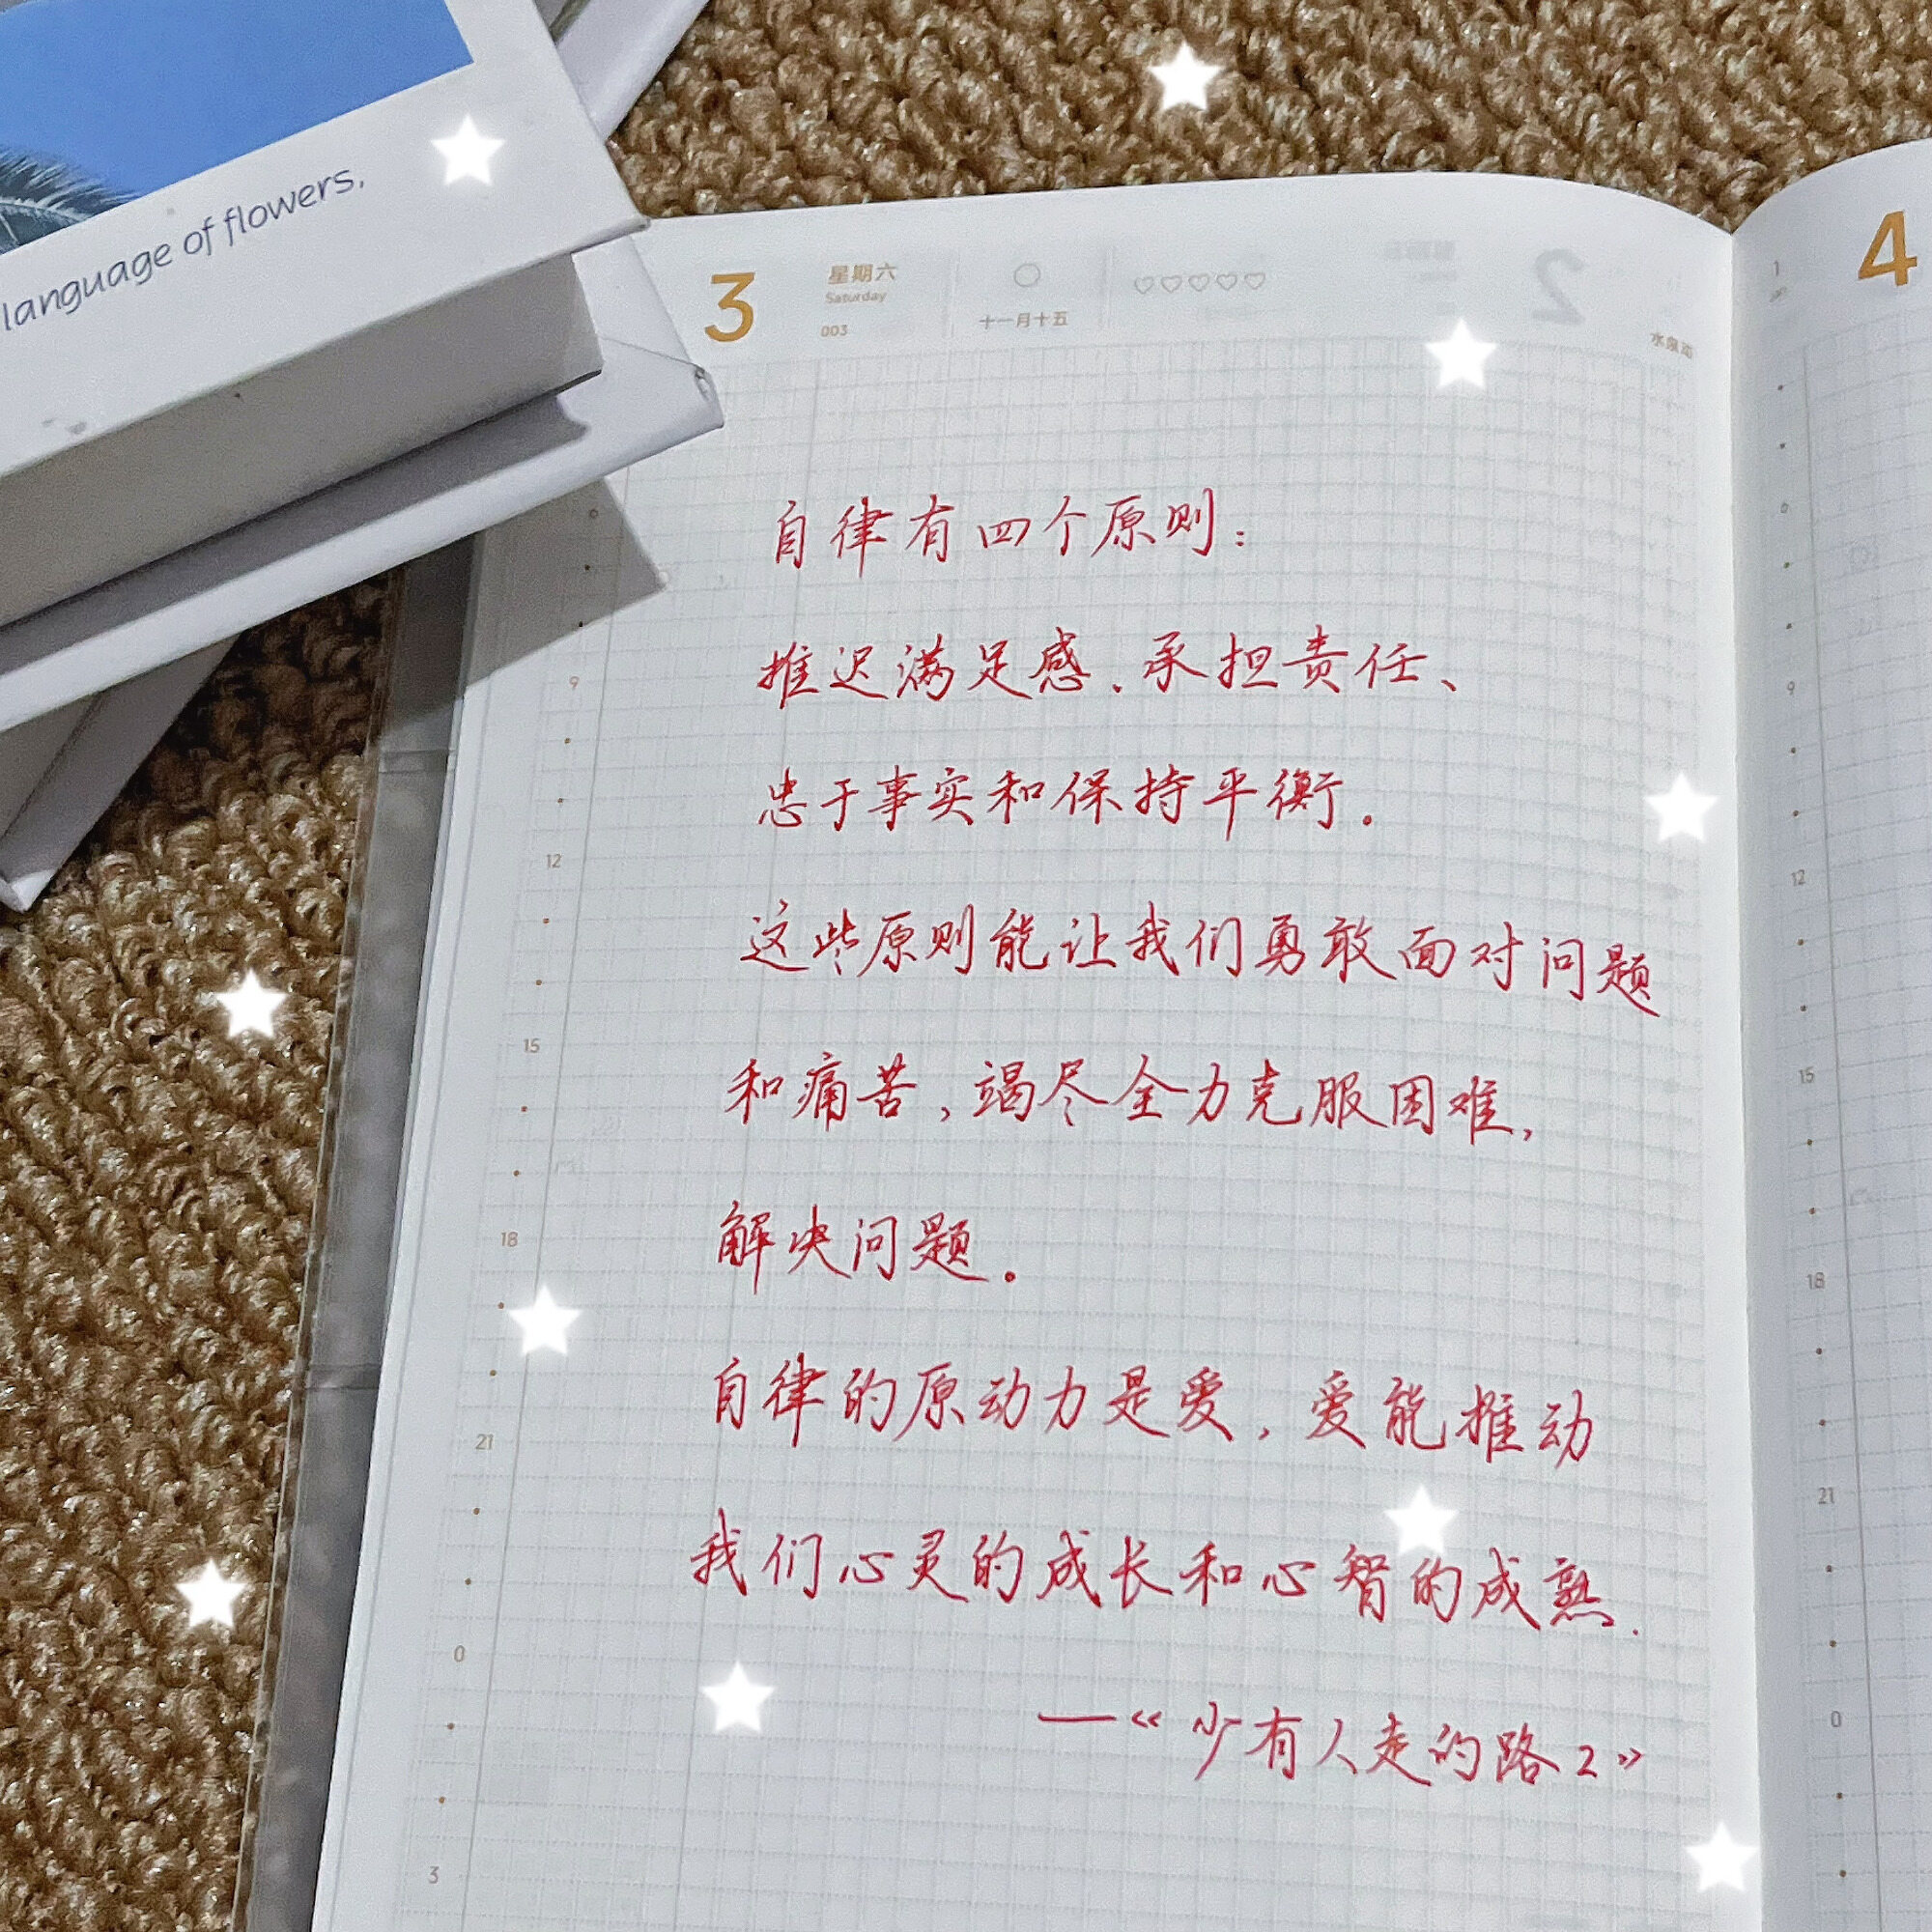 language of flowers,
3
星期六
Saturday
003
十一月十五
2
4
自律有四个原则：
推迟满足感、承担责任、
忠于事实和保持平衡。
这些原则能让我们勇敢面对问题
和痛苦，竭尽全力克服困难，
解决问题。
自律的原动力是爱，爱能推动
我们心灵的成长和心智的成熟.
—《少有人走的路2》
9
12
15
18
21
0
3
6
9
12
15
18
21
0